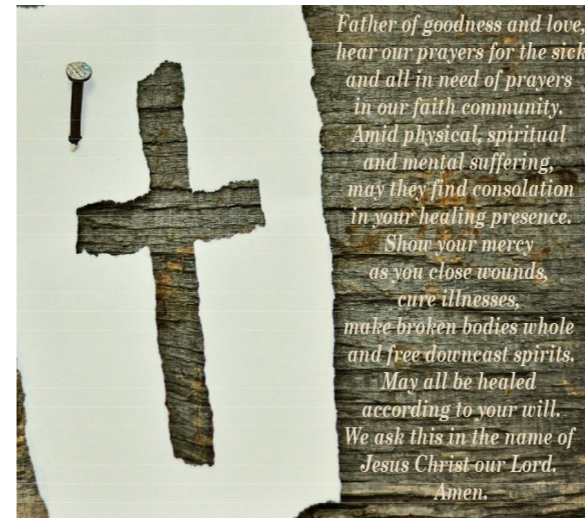 Father of goodness and love,
hear our prayers for the sick
and all in need of prayers
in our faith community.
Amid physical, spiritual
and mental suffering,
may they find consolation
in your healing presence.
Show your mercy
as you close wounds,
cure illnesses,
make broken bodies whole
and free downcast spirits.
May all be healed
according to your will.
We ask this in the name of
Jesus Christ our Lord.
Amen.